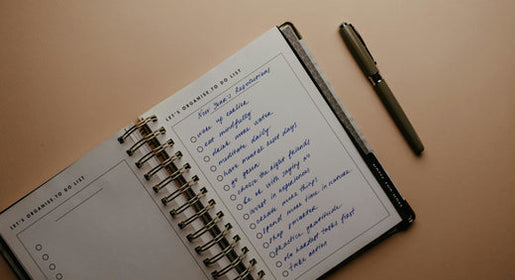 LET'S ORGANISE. TO DO LIST
LET'S ORGANISE. TO DO LIST
New Year's Resolutions
wake up earlier
eat mindfully
drink more water
meditate daily
have mental reset days
go green
choose the right friends
be ok with saying no
invest in experiences
create more things
spend more time in nature
shop smarter
practice gratitude
do hardest tasks first
take action